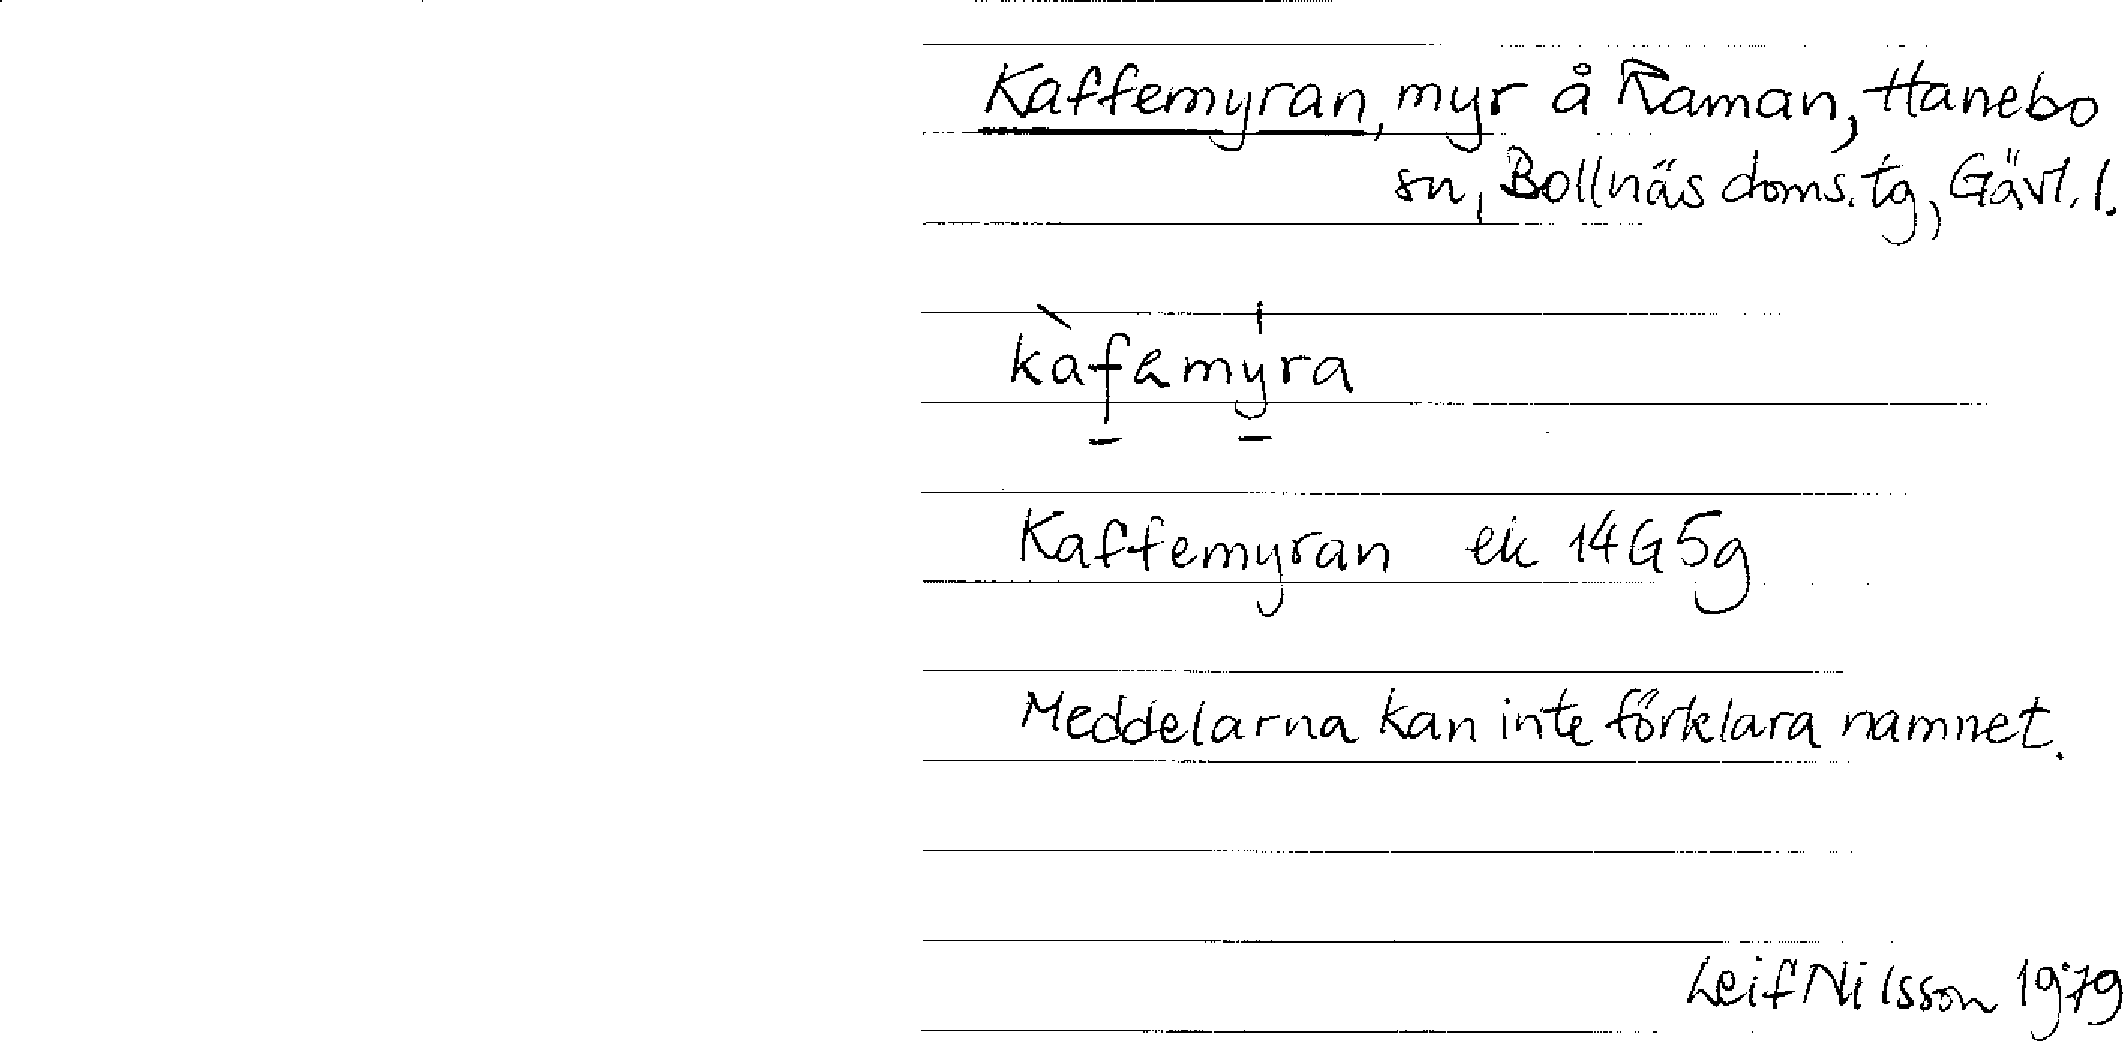 Kaffemyran, myr å Raman, Hanebo
sn, Bollnäs doms. tg, Gävl. l.
kàfemy̍ra
Kaffemyran ek 14G5g
Meddelarna kan inte förklara namnet.
Leif Nilsson 1979